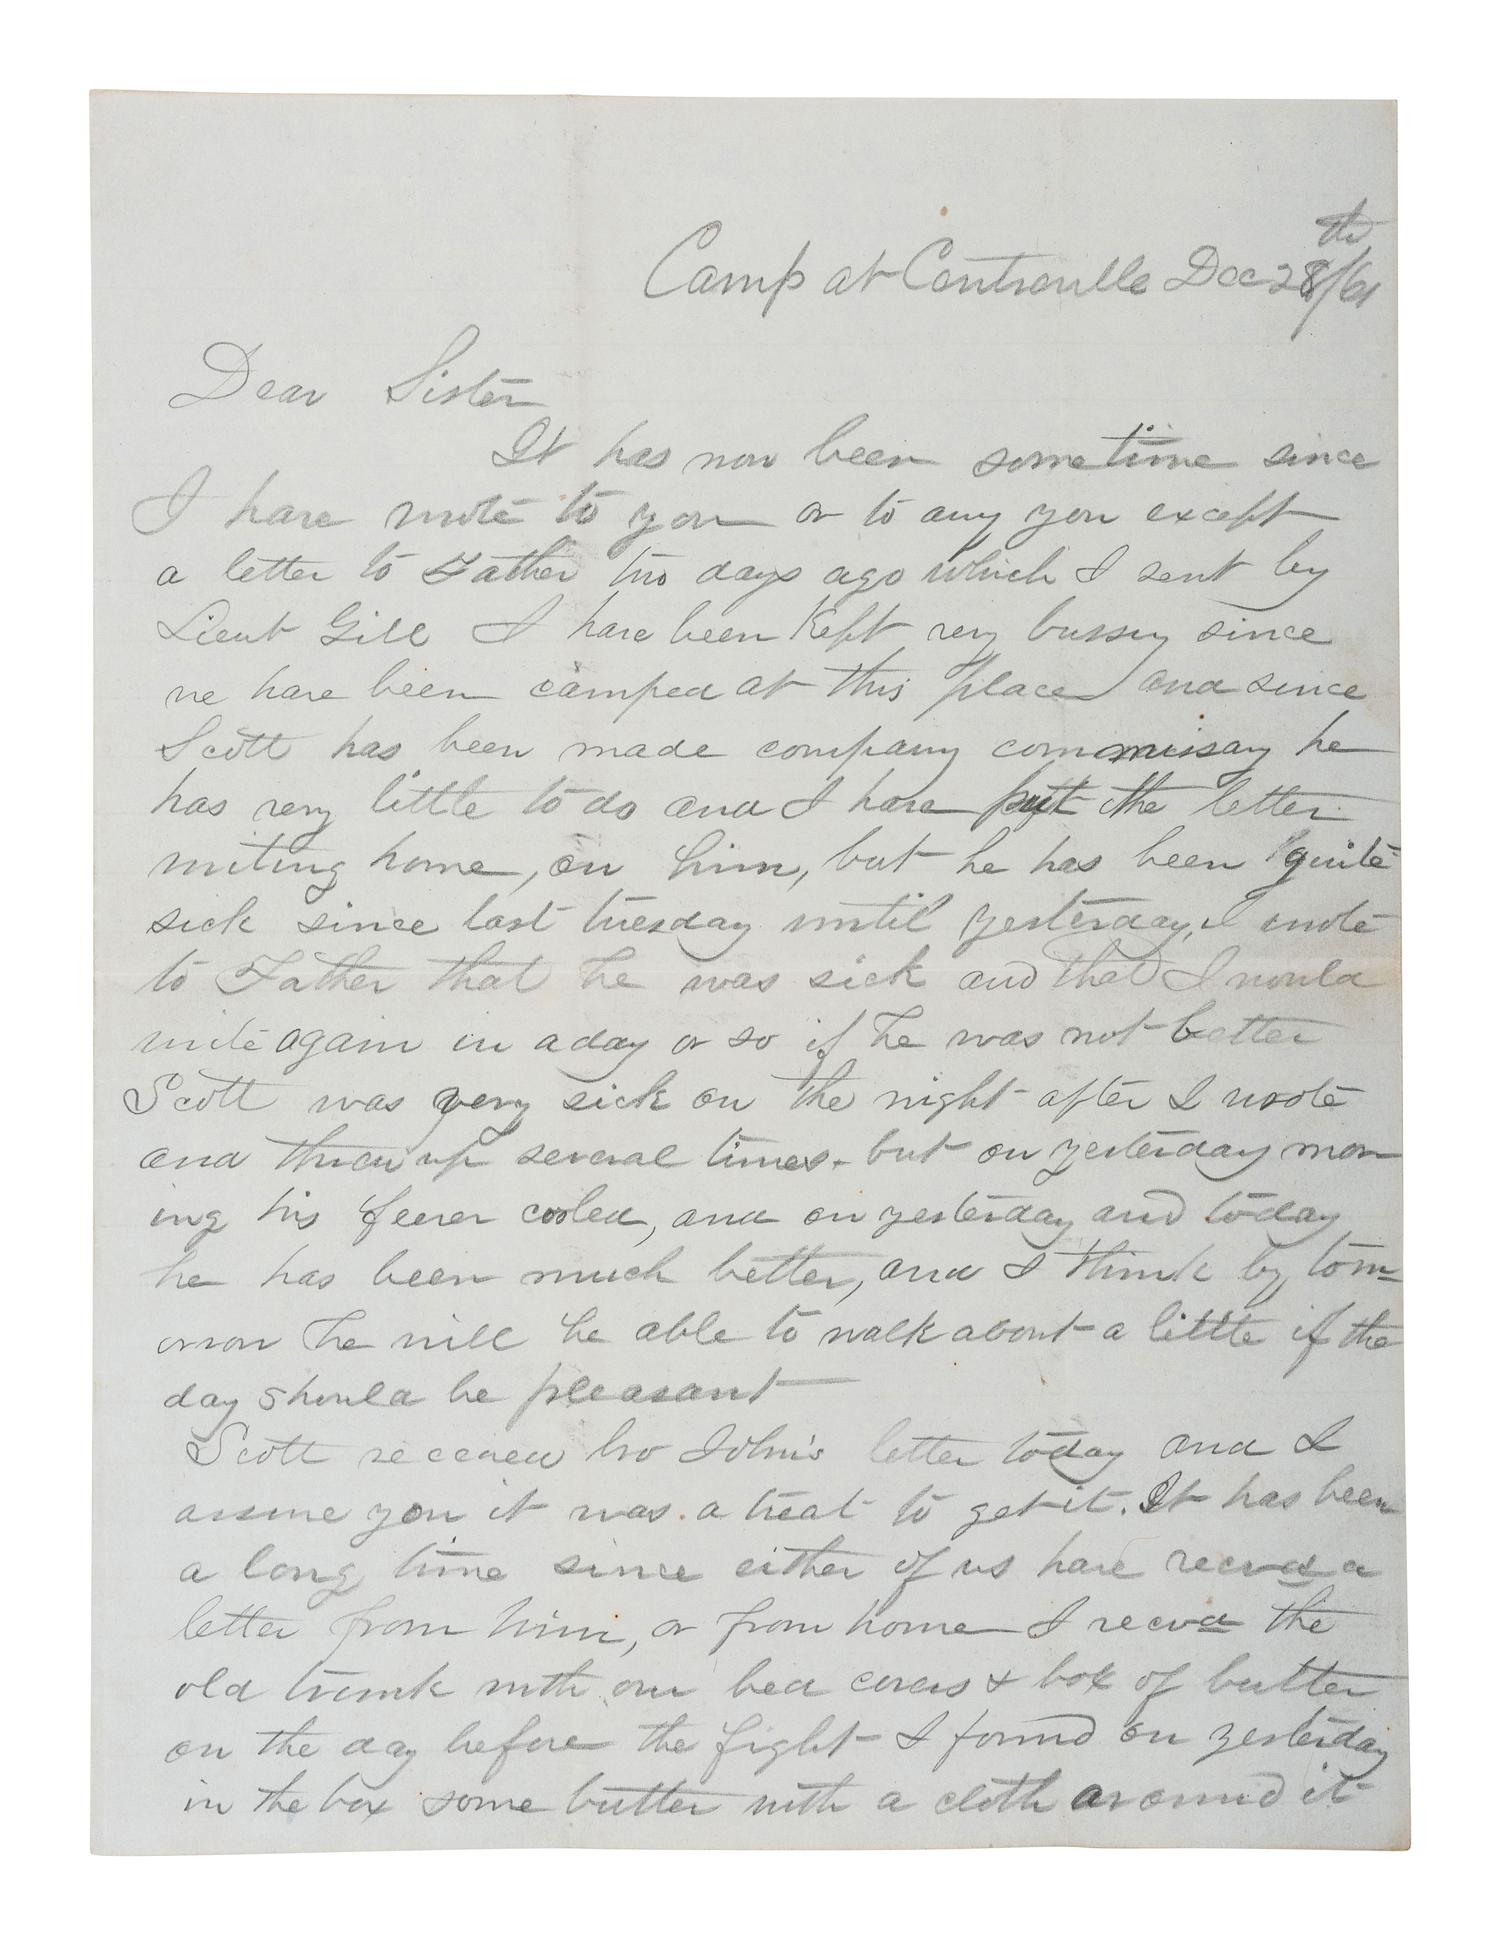 Camp at Centreville Dec 28th/61
Dear Sister
It has now been sometime since
I have wrote to you or to any you except
a letter to Father two days ago which I sent by
Lieut Gill I have been Kept very bussy since
we have been camped at this place and since
Scott has been made company commissay he
has very little to do and I have put the letter
writing home, on him, but he has been quite
sick since last tuesday until yesterday, I wrote
to Father that he was sick and that I would
write again in a day or so if he was not better
Scott was very sick on the night after I wrote
and threw up several times - but on yesterday mor
ing his feever cooled, and on yesterday and today
he has been much better, and I think by tom=
orrow he will be able to walk about a little if the
day should be pleasant
Scott receved bro John's letter today and I
assure you it was a treat to get it. It has been
a long time since either of us have recvd a
letter from him, or from home I recvd the
old trunk with our bed covers & box of butter
on the day before the fight I found on yesterday
in the box some butter with a cloth around it